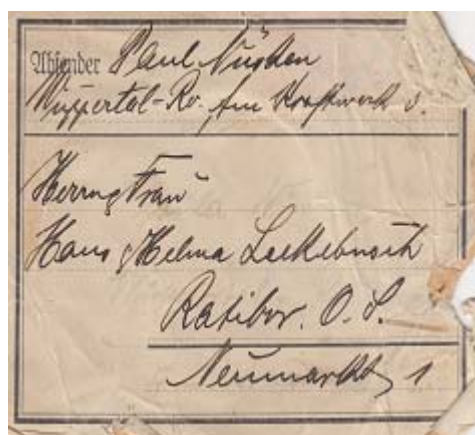 Absender Paul Nüsken
Wuppertal-Ro. Am Kraftwerk 3.
Herrn & Frau
Hans & Helma Luckebusch
Ratibor. O. S.
Neumarkt 1